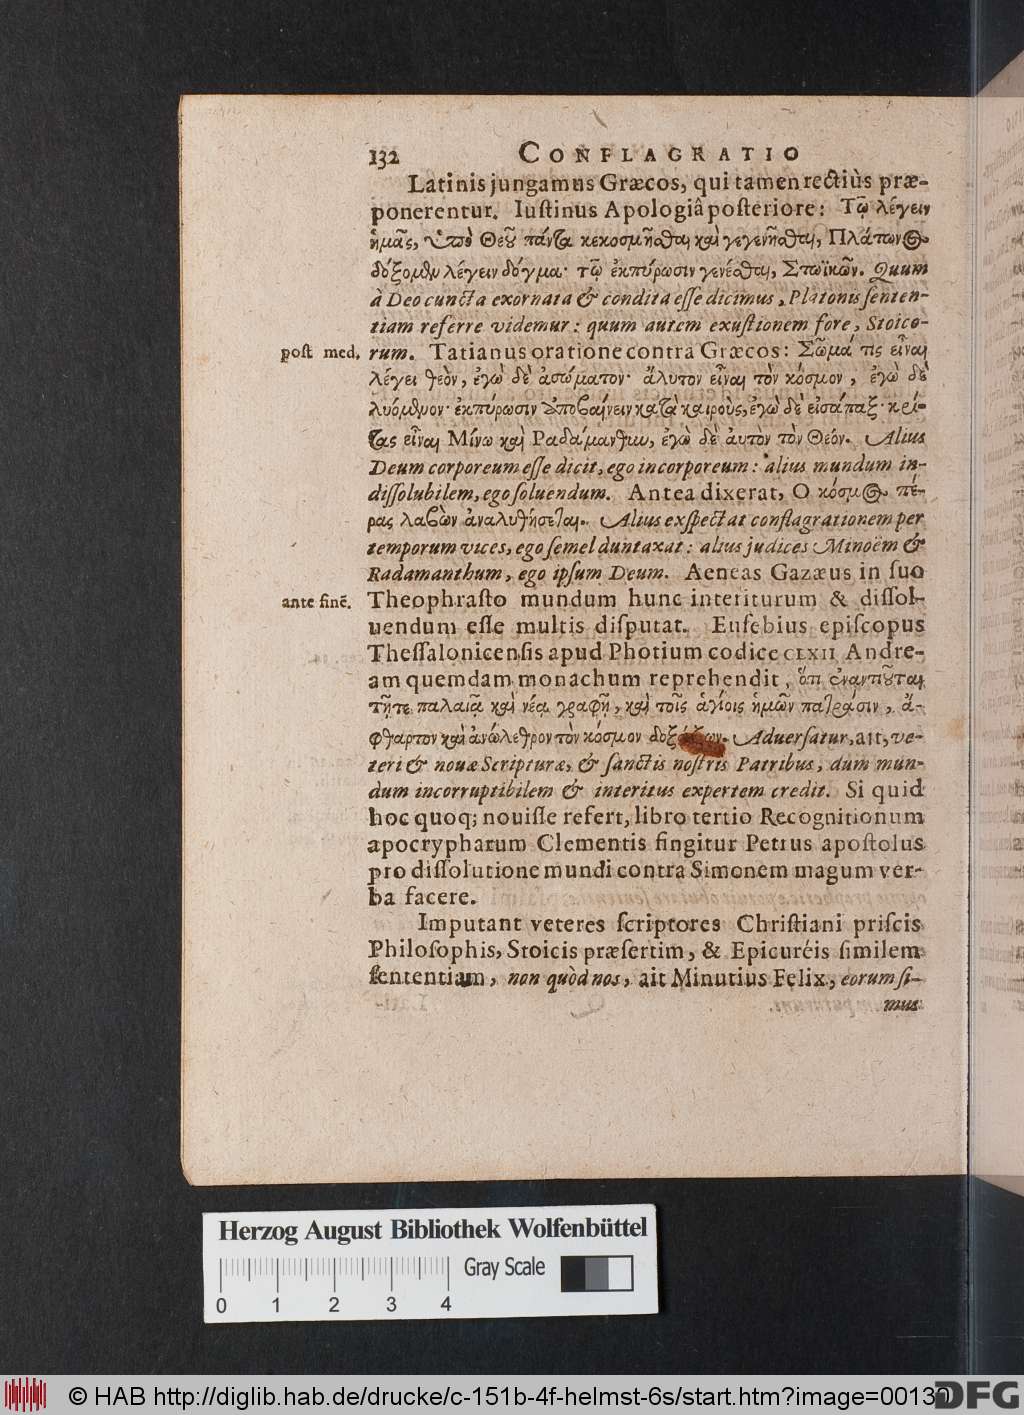 132 CONFLAGRATIO
Latinis jungamus Græcos, qui tamen rectiùs præ-
ponerentur. Iustinus Apologiâ posteriore: Τῷ λέγειν
ἡμᾶς, ὑπὸ Θεοῦ πάντα κεκοσμῆσθαι καὶ γεγενῆσθαι, Πλάτωνος
δόξομεν λέγειν δόγμα· τῷ ἐκπύρωσιν γενέσθαι, Στωϊκῶν. Quum
à Deo cuncta exornata & condita esse dicimus, Platonis senten-
tiam referre videmur: quum autem exustionem fore, Stoico-
post med. rum. Tatianus oratione contra Græcos: Σῶμά τις εἶναι
λέγει θεὸν, ἐγὼ δὲ ἀσώματον· ἄλυτον εἶναι τὸν κόσμον, ἐγὼ δὲ
λυόμενον· ἐκπύρωσιν ἀποβαίνειν κατὰ καιροὺς, ἐγὼ δὲ εἰσάπαξ· κρί-
τας εἶναι Μίνω καὶ Ραδάμανθυν, ἐγὼ δὲ ἀυτὸν τὸν Θεόν. Alius
Deum corporeum esse dicit, ego incorporeum: alius mundum in-
dissolubilem, ego soluendum. Antea dixerat, Ο κόσμος πέ-
ρας λαβὼν ἀναλυθήσεται. Alius exspectat conflagrationem per
temporum vices, ego semel duntaxat: alius judices Minoëm &
Radamanthum, ego ipsum Deum. Aeneas Gazæus in suo
ante finē. Theophrasto mundum hunc interiturum & dissol-
uendum esse multis disputat. Eusebius episcopus
Thessalonicensis apud Photium codice CLXII Andre-
am quemdam monachum reprehendit, ὅτι ἐναντιοῦται
τῇτε παλαιᾷ καὶ νέᾳ γραφῇ, καὶ τοῖς ἁγίοις ἡμῶν πατράσιν, ἄ-
φθαρτον καὶ ἀνώλεθρον τὸν κόσμον δοξάζων. Aduersatur, ait, ve-
teri & novæ Scripturæ, & sanctis nostris Patribus, dum mun-
dum incorruptibilem & interitus expertem credit. Si quid
hoc quoq; nouisse refert, libro tertio Recognitionum
apocrypharum Clementis fingitur Petrus apostolus
pro dissolutione mundi contra Simonem magum ver-
ba facere.
Imputant veteres scriptores Christiani priscis
Philosophis, Stoicis præsertim, & Epicuréis similem
sententiam, non quòd nos, ait Minutius Felix, eorum si-
mus
Herzog August Bibliothek Wolfenbüttel
Gray Scale
0 1 2 3 4
© HAB http://diglib.hab.de/drucke/c-151b-4f-helmst-6s/start.htm?image=00130
DFG